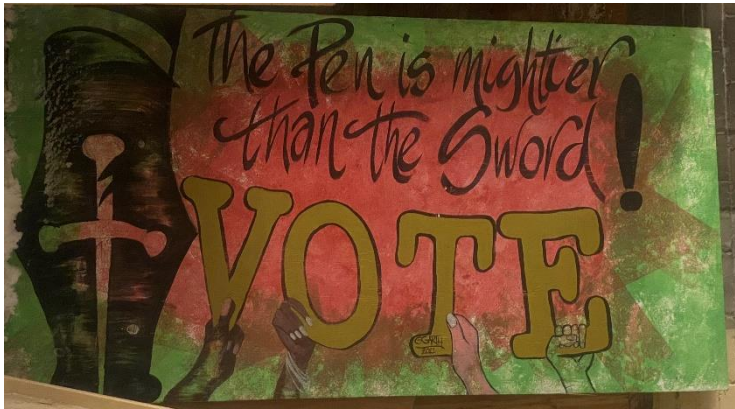 The Pen is mightier
than the Sword!
VOTE